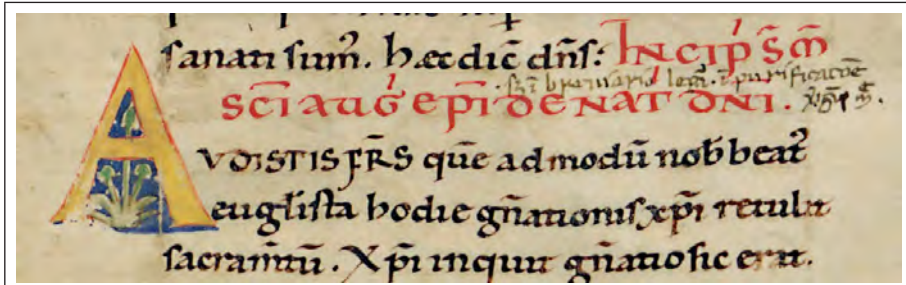 sanati sum᷒. hęc dic̄ dn̄s: INCIP̄ SM̄
SC̄I AUḠ EP̄I DE NAT DN̄I.
AVDISTIS FR̄S quē ad modū nob̄ beat᷒
euḡlista hodie gn̄ationis xp̄i retulit
sacram̄tū. Xp̄i inquit gn̄atio sic erat.